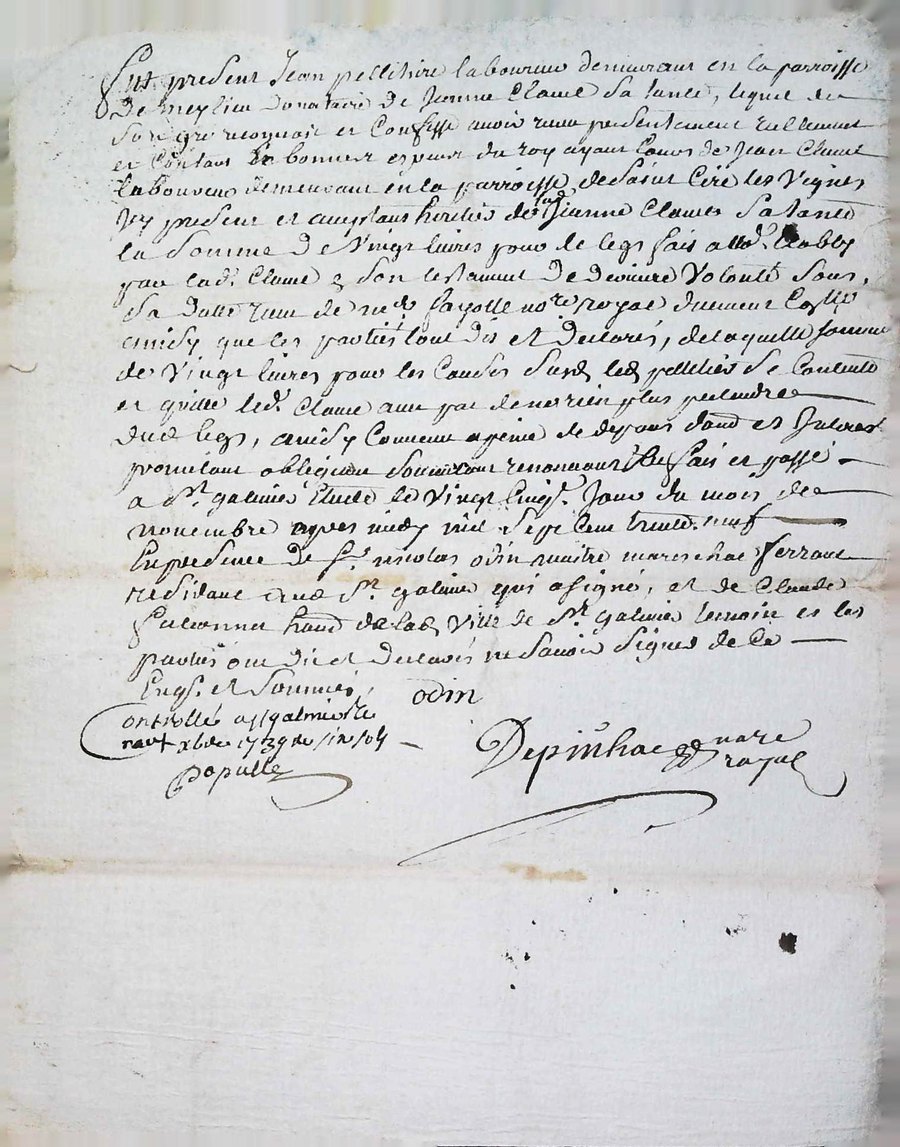 Fut present Jean pellitier laboureur demeurant en la parroisse
De meylieu Donataire de Jeanne Claure Sa tante, lequel de
Son gre reconnoit et Confesse avoir reçeu presentement reellement
et Contant En bonnes especes du roy ayant Cours de Jean Claure
laboureur demeurant en la parroisse de Saint Cire les Vignes
Icy present et aceptant heritier de lad Jeanne Claure Sa tante
la Somme De Vingt livres pour de legs fait
par lad. Claure Son testament De derniere Volonté Sous
Sa datte receu de me fayolle nore royal
ainsy que les parties l'ont dit et Declarés, de laquelle Somme
de Vingt livres pour les Causes Susd. led. pelletier Se Contente
et quitte led. Claure avec pac de ne rien plus pretendre
dud legs, ainsy Convenu a peine de depans dam et Interest
promettant obligeant Soumettant renonceant &c fait et passé
a St. galmier Etude le Vingt Cinqe. Jour du mois de
novembre apres midy mil Sept Cent trente neuf
En presence de Sr. nicolas odin maitre mareschal ferrant
residant aud St. galmier qui a signé, et de Claude
habt de lad. Ville de St. galmier temoin et les
parties ont dit et declarés ne Savoir Signer de Ce
Enqs. et Sommés,
odin
Controllé a St galmier le
1739
Populle
Depinhac nore
royal